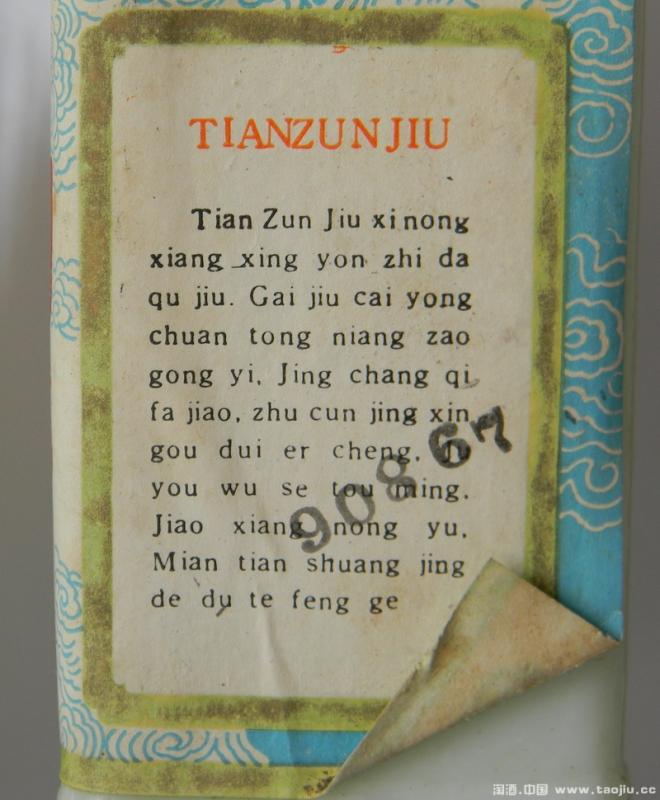 TIANZUNJIU
Tian Zun Jiu xinong
xiang xing yon zhi da
qu jiu. Gai jiu cai yong
chuan tong niang zao
gong yi, Jing chang qi
fa jiao, zhu cun jing xin
gou dui er cheng,
you wu se tou ming.
Jiao xiang nong yu,
Mian tian shuang jing
de du te feng ge
90867
淘酒.中国 www.taojiu.cc